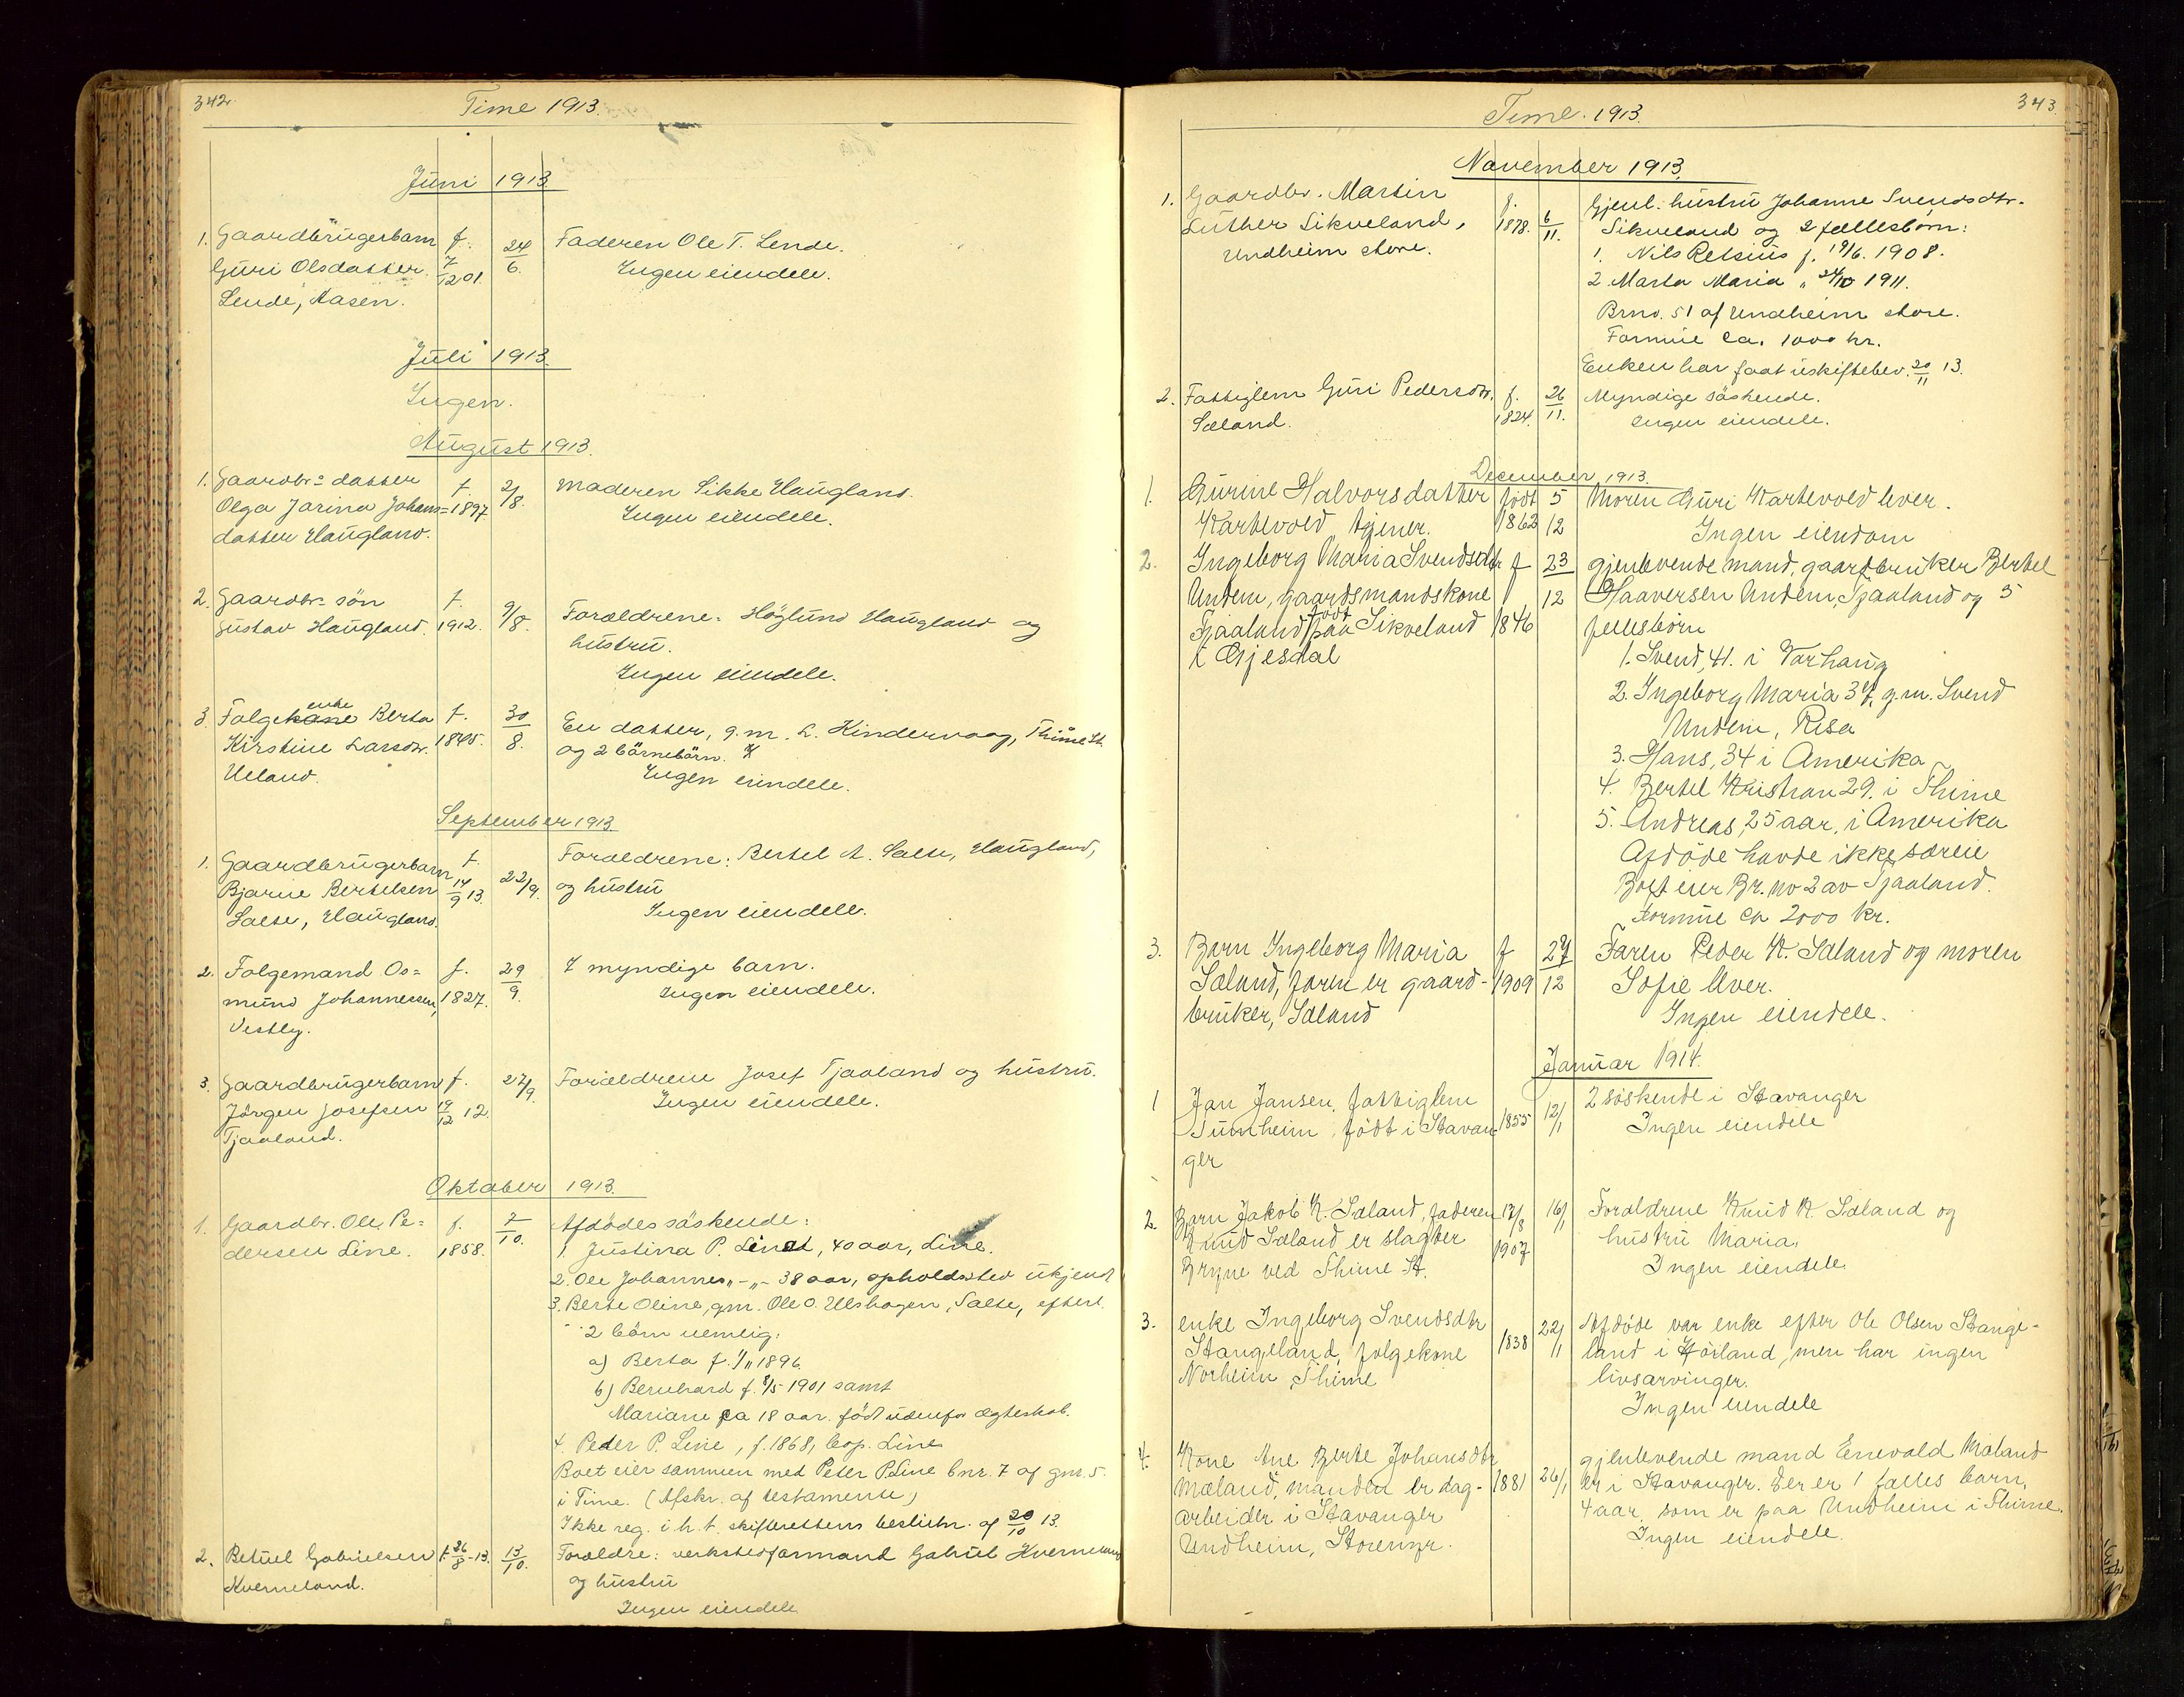 342
Time 1913.
Juni 1913.
1. Gaardbrugerbarn f. 24/6. Faderen Ole T. Lende.
Guri Olsdatter 7/12 01. Ingen eiendele.
Lende, Aasen.
Juli 1913.
Ingen.
August 1913.
1. Gaardbr.s datter f. 2/8. Moderen Sikke Haugland.
Olga Jorina Johans= 1897. Ingen eiendele.
datter Haugland.
2. Gaardbr. sön f. 9/8. Forældrene: Höglund Haugland og
Gustav Haugland. 1912. hustru.
Ingen eiendele.
enke
3. Folgekone Berta f. 30/8. En datter, g.m. L. Kindervaag, Thime St.
Kirstine Larsdr. 1845. og 2 börnebörn.
Ueland. Ingen eiendele.
September 1913.
1. Gaardbrugerbarn f. 22/9. Forældrene: Bertel A. Salte, Haugland,
Bjarne Bertelsen 14/9 13. og hustru
Salte, Haugland. Ingen eiendele.
2. Folgemand Os= f. 29/9. 7 myndige barn.
mund Johannessen, 1827. Ingen eiendele.
Vestly.
3. Gaardbrugerbarn f. 27/9. Forældrene Josef Tjaaland og hustru.
Jörgen Josefsen 19/12 12. Ingen eiendele.
Tjaaland.
Oktober 1913.
1. Gaardbr. Ole Pe= f. 7/10. Afdödes söskende:
dersen Line. 1858. 1. Justina P. Line, 40 aar, Line.
2. Ole Johannes -"- 38 aar, opholdssted ukjendt
3. Berte Oline, gm. Ole O. Ulshagen, Salte, efterl.
2 börn nemlig:
a) Berta f. 1/11 1896.
b) Bernhard f. 8/5 1901 samt
Mariane ca 18 aar. födt udenfor ægteskab.
4. Peder P. Line, f. 1868, bop. Line
Boet eier sammen med Peder P. Line bnr. 7 af gnr. 5.
i Time. (Afskr. af testamente)
Ikke reg. i h. t. skifterettens beslutn. af 20/10 13.
2. Betuel Gabrielsen f. 26/8 - 13. 13/10. Forældre: verkstedformand Gabriel Kverneland
Kverneland. og hustru
Ingen eiendele
343
Time. 1913.
November 1913.
1. Gaardbr. Martin f. 6/11. Gjenl. hustru Johanne Svendsdtr.
Luther Sikveland, 1878. Sikveland og 2 fællesbörn:
Undheim store. 1. Nils Retsius f. 19/6. 1908.
2. Marta Maria " 24/10 1911.
Brno. 51 af Undheim store.
Formue ca. 1000 kr.
Enken har faat uskiftebev. 20/11 13.
2. Fattiglem Guri Pedersdtr. f. 26/11. Myndige söskende.
Sæland. 1824. Ingen eiendele.
December 1913.
1. Gurine Halvorsdatter födt 5 Moren Guri Kartevold lever.
Kartevold, tjener. 1862 12 Ingen eiendom
2. Ingeborg Maria Svendsdtr f 23 gjenlevende mand, gaardbruker Bertel
Undem, gaardsmandskone 12 Haaversen Undem, Tjaaland og 5
Tjaaland, födt paa Sikveland 1846 fellesbörn
i Gjesdal 1. Svend, 41. i Varhaug
2. Ingeborg Maria 37, g.m. Svend
Undem, Risa
3. Hans, 34 i Amerika
4. Bertel Kristian 29. i Thime
5. Andreas, 25 aar, i Amerika
Afdöde havde ikke særeie
Boet eier Br. no 2 av Tjaaland.
Formue ca 2000 kr.
3. Barn Ingeborg Maria f 27 Faren Peder K. Sæland og moren
Sæland, faren er gaard- 1909 12 Sofie lever.
bruker, Sæland Ingen eiendele.
Januar 1914.
1 Jan Jansen, fattiglem 1855 12/1 2 söskende i Stavanger
Sunnheim, födt i Stavan Ingen eiendele
ger
2. Barn Jakob K. Sæland, faderen 17/8 16/1 Forældrene Knud K. Sæland og
Knud Sæland er slagter 1907 hustru Maria.
Bryne ved Thime St. Ingen eiendele.
3. enke Ingeborg Svendsdtr 1838 22/1 Afdöde var enke efter Ole Olsen Stange-
Stangeland, folgekone land i Höiland, men har ingen
Norheim, Thime livsarvinger.
Ingen eiendele
4. Kone Ane Berte Johansdtr 1881 26/1 gjenlevende mand Enevald Mæland
Mæland, manden er dag- er i Stavanger. Der er 1 fælles barn,
arbeider i Stavanger 4 aar, som er paa Undheim i Thime.
Undheim, Storemyr. Ingen eiendele.